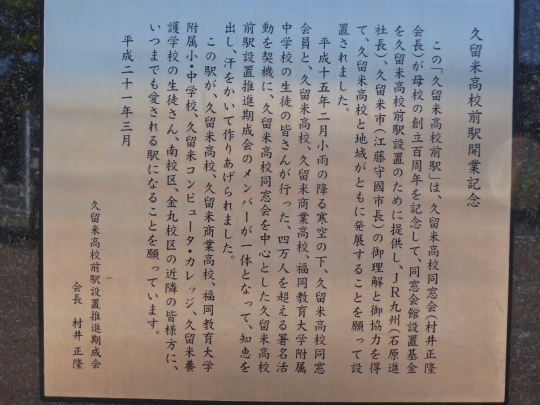 久留米高校前駅開業記念
この「久留米高校前駅」は、久留米高校同窓会(村井正隆
会長)が母校の創立百周年を記念して、同窓会館設置基金
を久留米高校前駅設置のために提供し、JR九州(石原進
社長)、久留米市(江藤守國市長)の御理解と御協力を得
て、久留米高校と地域がともに発展することを願って設
置されました。
平成十五年二月小雨の降る寒空の下、久留米高校同窓
会員と、久留米高校、久留米商業高校、福岡教育大学附属
中学校の生徒の皆さんが行った、四万人を超える署名活
動を契機に、久留米高校同窓会を中心とした久留米高校
前駅設置推進期成会のメンバーが一体となって、知恵を
出し、汗をかいて作りあげられました。
この駅が、久留米高校、久留米商業高校、福岡教育大学
附属小・中学校、久留米コンピュータ・カレッジ、久留米養
護学校の生徒さん、南校区、金丸校区の近隣の皆様方に、
いつまでも愛される駅になることを願っています。
平成二十一年三月
久留米高校前駅設置推進期成会
会長 村井正隆